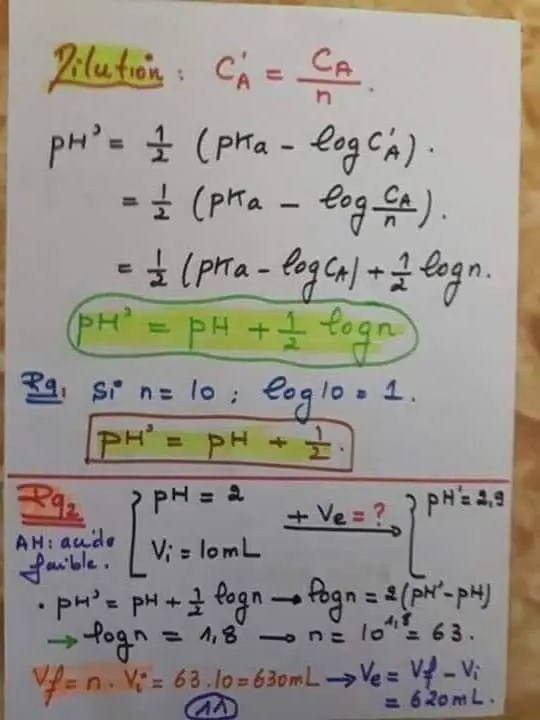 Dilution : C'A = CA/n.
pH' = 1/2 (pKa - log C'A).
= 1/2 (pKa - log CA/n).
= 1/2 (pKa - log CA) + 1/2 log n.
pH' = pH + 1/2 log n
Rq1 Si n = 10 ; log 10 = 1.
pH' = pH + 1/2.
Rq2 { pH = 2 + Ve = ? → { pH' = 2,9
AH : acide faible. Vi = 10 mL
• pH' = pH + 1/2 log n → log n = 2(pH' - pH)
→ log n = 1,8 → n = 10^1,8 = 63.
Vf = n · Vi = 63 · 10 = 630 mL → Ve = Vf - Vi
= 620 mL.
11